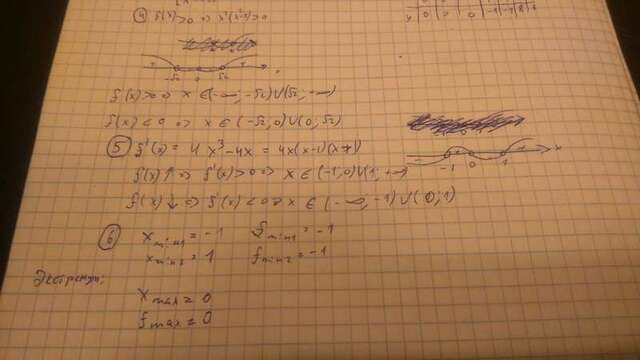 ④ f(x)>0 <=> x²(x²-2)>0
y 0 0 -1 -1 8 8
+ - - +
-√2 0 √2 x
f(x)>0 => x ∈ (-∞; -√2) ∪ (√2; +∞)
f(x)<0 => x ∈ (-√2, 0) ∪ (0, √2)
⑤ f'(x) = 4x³-4x = 4x(x-1)(x+1)
- + - +
-1 0 1 x
f(x)↑ => f'(x)>0 => x ∈ (-1, 0) ∪ (1, +∞)
f(x)↓ => f'(x)<0 => x ∈ (-∞, -1) ∪ (0; 1)
⑥ x min1 = -1 f min1 = -1
x min2 = 1 f min2 = -1
Экстремум:
x max = 0
f max = 0